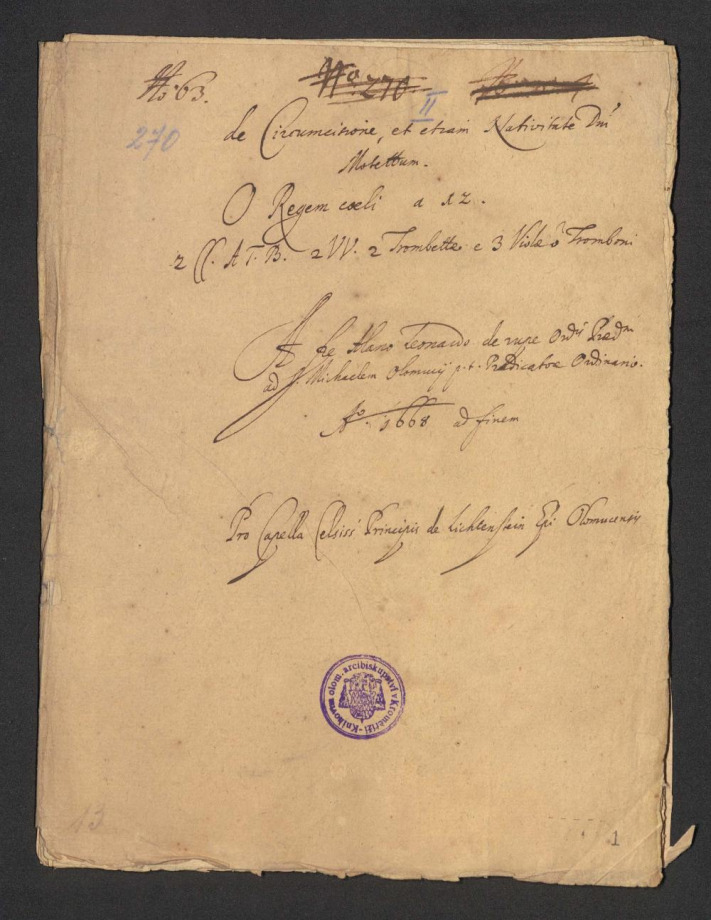 No: 63.
No. 270
270
II
de Circumcisione, et etiam Nativitate Dnī
Motettum.
O Regem cœli a 12.
2 CC. A T. B. 2 VV. 2 Trombette e 3 Viole ò Tromboni
A Fre Alano Leonardo de rupe Ordīs Prædm
ad S. Michaelem Olomucij p. t. Prædicatore Ordinario.
Ao. 1668 ad finem
Pro Capella Celsiss Principis de Lichtenstain Epī Olomucensis
Knihovna olom. arcibiskupství v Kroměříži
13
1